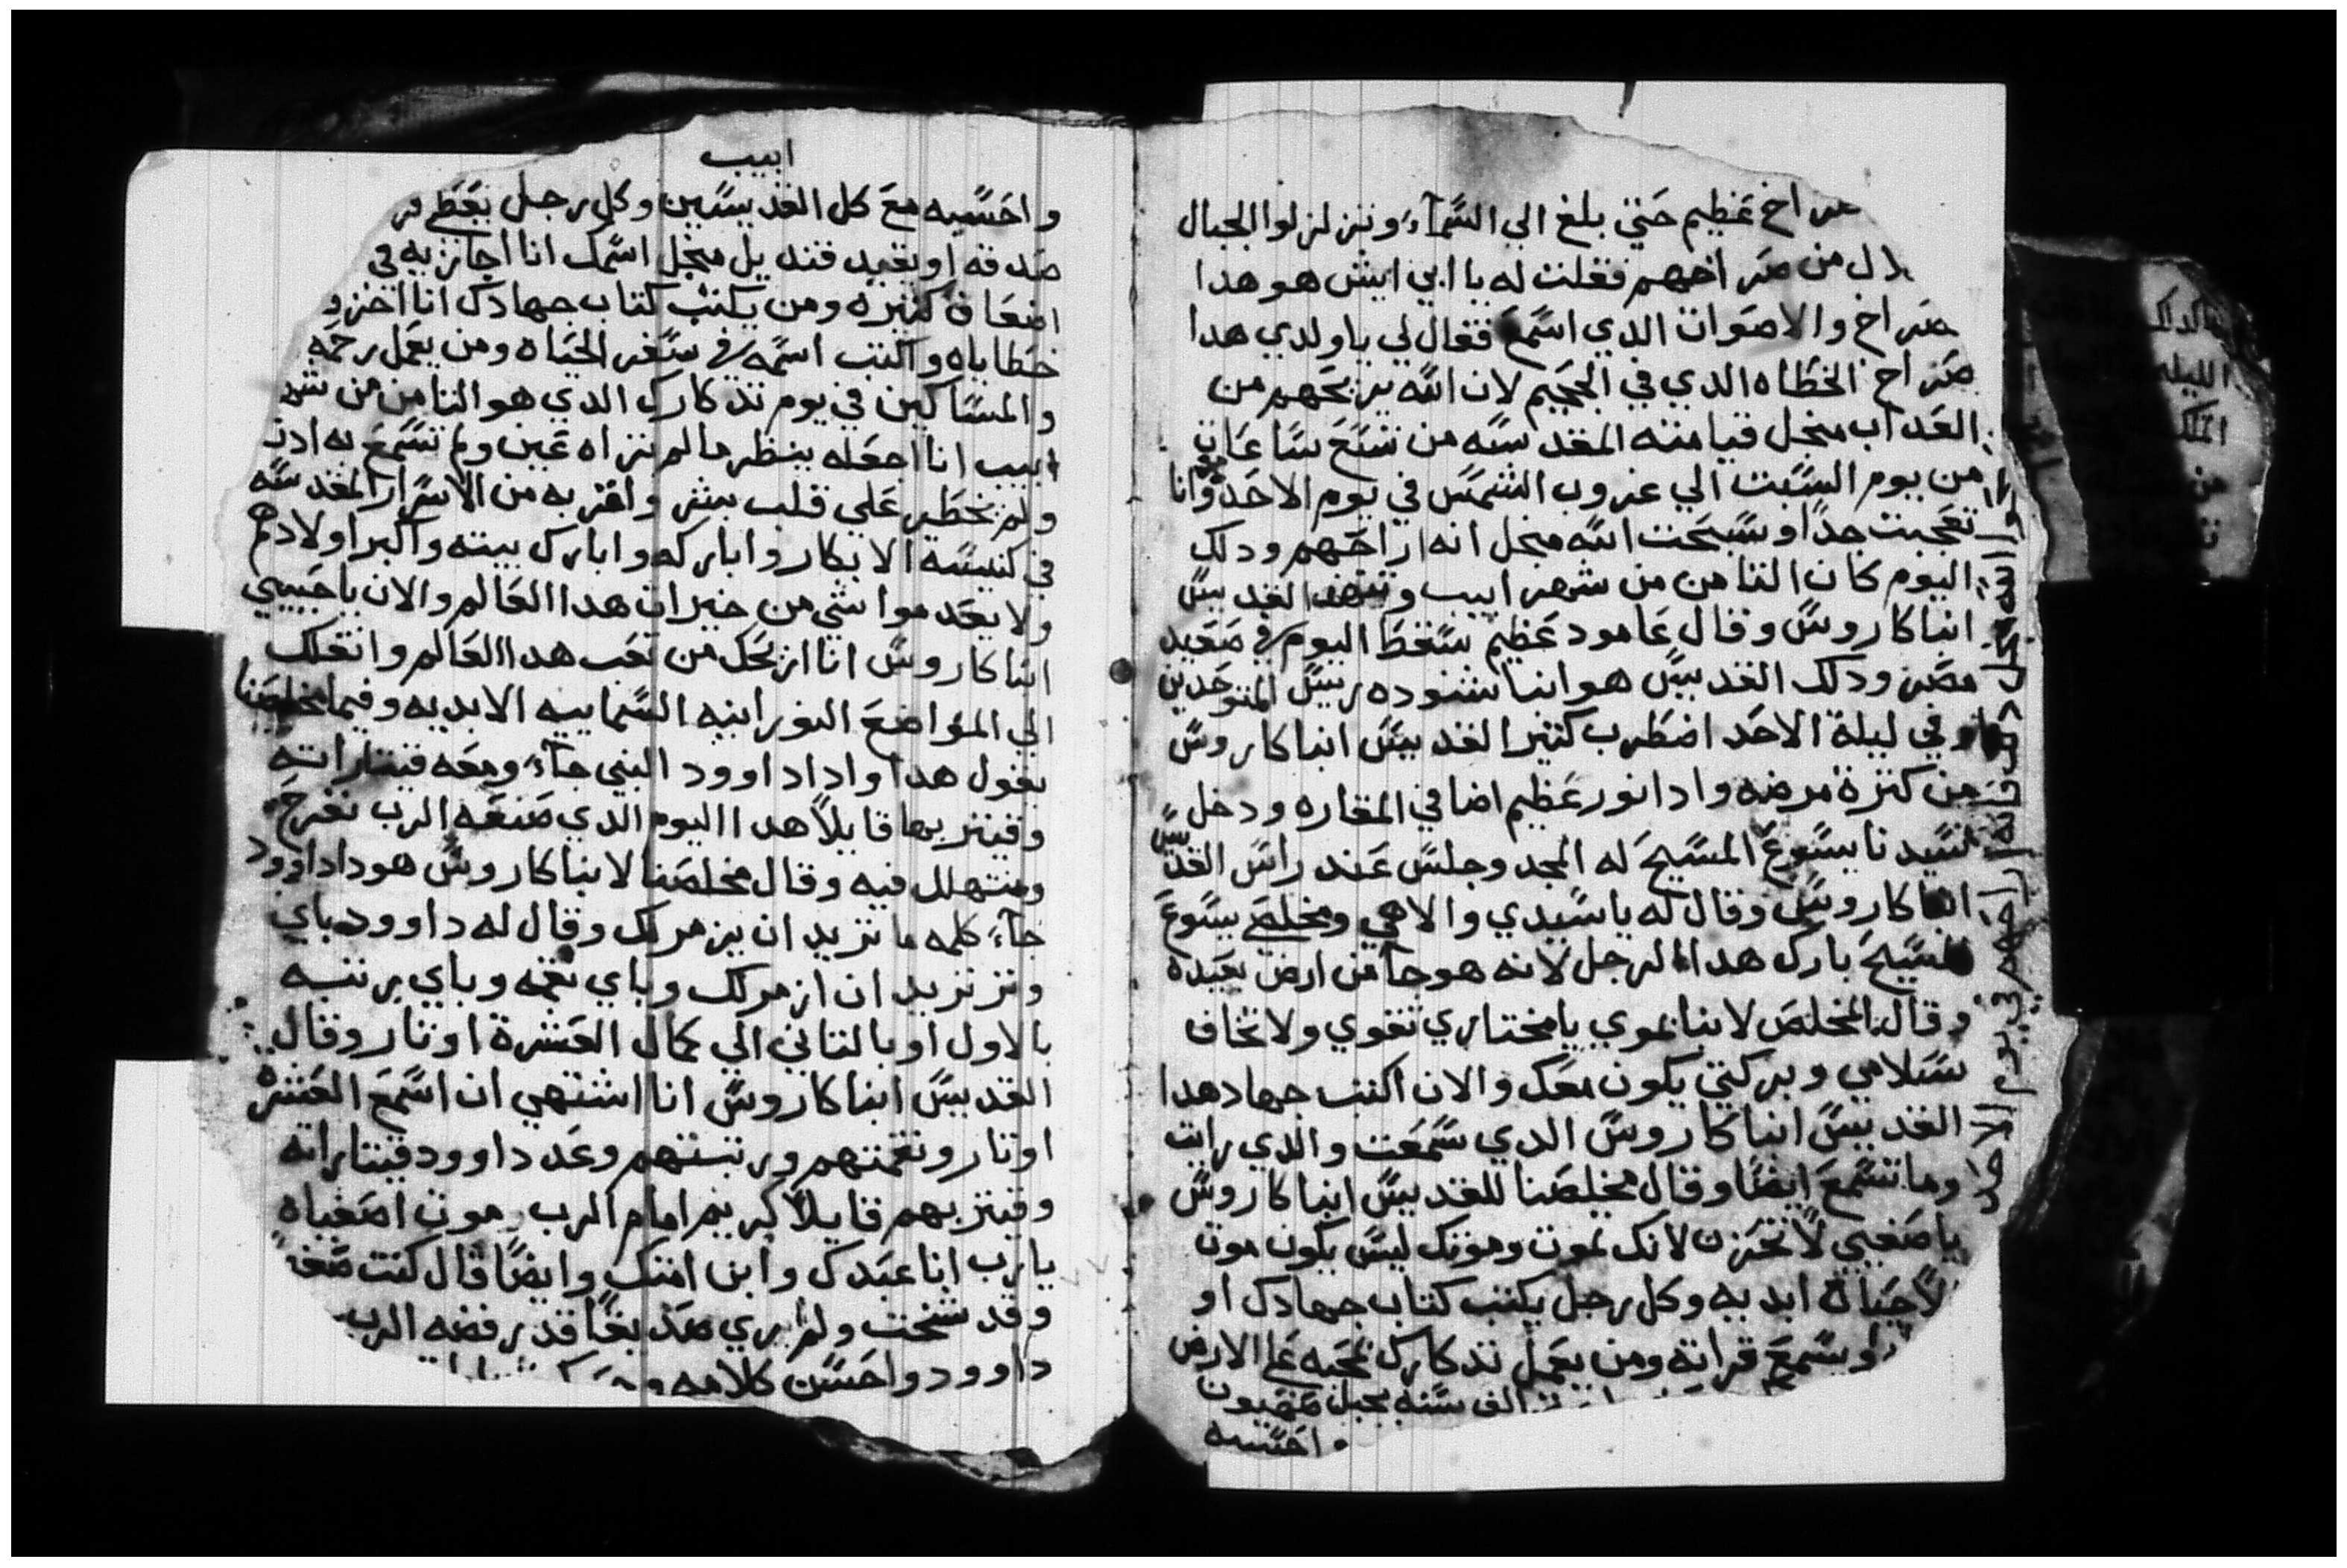 صراخ عظيم حتي بلغ الي السماء وتزلزلوا الجبال
من صراخهم فقلت له يا ابي ايش هو هدا
صراخ والاصوات الدي اسمع فقال لي يا ولدي هدا
صراخ الخطاه الدي في الجحيم لان الله يريحهم من
العداب منجل قيامته المقدسه من تسع ساعات
من يوم السبت الي غروب الشمس في يوم الاحد وانا
تعجبت جدا وسبحت الله منجل انه اراحهم ودلك
اليوم كان التامن من شهر ابيب وتنهد القديس
انبا كاروس وقال عامود عظيم سقط اليوم في صعيد
مصر ودلك القديس هو انبا شنوده رييس المتوحدين
وفي ليلة الاحد اضطرب كتير القديس انبا كاروس
من كترة مرضه وادا نور عظيم اضا في المغاره ودخل
سيدنا يسوع المسيح له المجد وجلس عند راس القديس
انبا كاروس وقال له يا سيدي والاهي ومخلصي يسوع
المسيح بارك هدا الرجل لانه هو جا من ارض بعيده
وقال المخلص لانبا بموي يا مختاري تقوي ولا تخاف
سلامي وبركتي يكون معك والان اكتب جهاد هدا
القديس انبا كاروس الدي سمعت والدي رايت
وما تسمع ايضا وقال مخلصنا للقديس انبا كاروس
يا صفيي لا تحزن لانك تموت وموتك ليس يكون موت
لا حياة ابديه وكل رجل يكتب كتاب جهادك او
او سمع قراته ومن يعمل تدكارك محبه علي الارض
الف سنه بجبل صهيون
واحسبه
الله منجل
انه اراحهم في يوم الاحد
ابيب
واحسبه مع كل القديسين وكل رجل يعطي
صدقه او يقيد قنديل منجل اسمك انا اجازيه في
اضعاف كتيره ومن يكتب كتاب جهادك انا اخزق
خطاياه واكتب اسمه في سفر الحياه ومن يعمل رحمه
والمساكين في يوم تدكارك الدي هو التامن من شهر
ابيب انا اجعله ينظر ما لم تراه عين ولم تسمع به ادن
ولم يخطر علي قلب بشر واقربه من الاسرار المقدسه
في كنيسة الابكار واباركه وابارك بيته واكبر اولادهم
ولا يعدموا شي من خيرات هدا العالم والان يا حبيبي
انبا كاروس انا اريحك من تعب هدا العالم وانقلك
الي المواضع النورانيه السماييه الابديه وفيما مخلصنا
يقول هدا وادا داوود النبي جاء ومعه قيتاراته
وقيتر بها قايلا هدا اليوم الدي صنعه الرب نفرح
ونتهلل فيه وقال مخلصنا لانبا كاروس هودا داوود
جاء كلمه ما تريد ان يزمر لك وقال له داوود باي
وتر تريد ان ازمر لك وباي نغمه وباي رتبه
بالاول او بالتاني الي كمال العشرة اوتار وقال
القديس انبا كاروس انا اشتهي ان اسمع العشره
اوتار ونغمتهم ورتبتهم وعد داوود قيتاراته
وقيتر بهم قايلا كريم امام الرب موت اصفياه
يا رب انا عبدك وابن امتك وايضا قال كنت صغير
وقد شخت ولم يري صديقا قد رفضه الرب
داوود واحسن كلامه